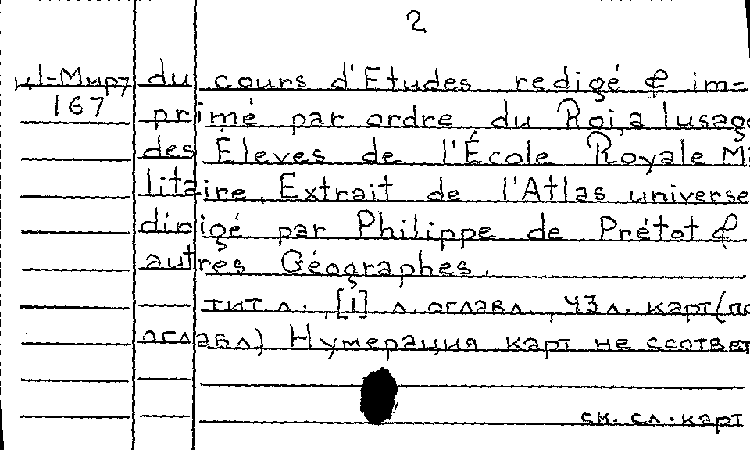 2
ul-Мирз du cours d'Etudes redigé & im=
167 primé par ordre du Roi, a lusage
des Eleves de l'École Royale Mi
litaire. Extrait de l'Atlas universe
dirigé par Philippe de Prétot &
autres Géographes.
тит л., [1] л. оглавл., 43 л. карт (по
оглавл) Нумерация карт не соответ
см. сл. карт